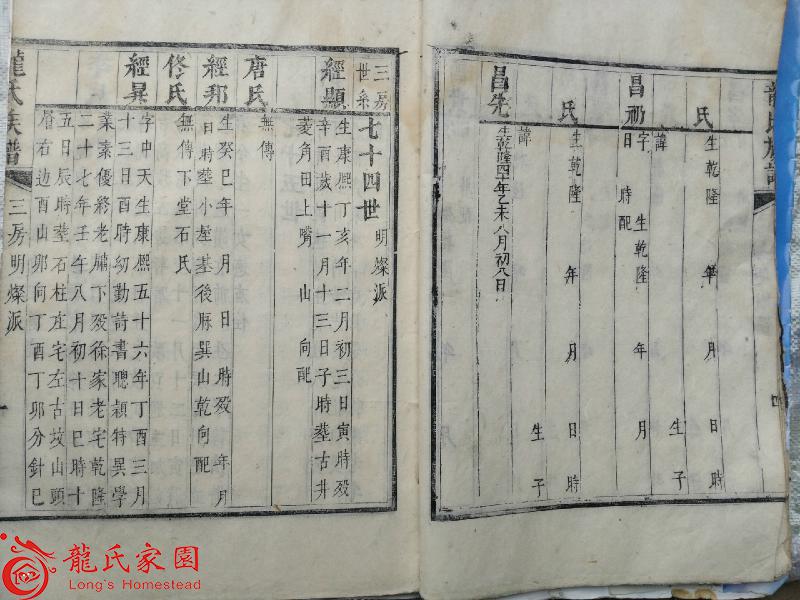 龍氏族譜
氏 生乾隆 年 月 日時
諱 生子
昌礽 字 生乾隆 年 月
日 時 配
氏 生乾隆 年 月 日時
諱 生子
昌先 生乾隆四十年乙未八月初八日
三房世系 七十四世 明燦派
經顯 生康熙丁亥年二月初三日寅時歿
辛酉歲十一月十三日子時塟古井
菱角田上嘴 山 向配
唐氏 無傳
經邦 生癸巳年 月 日 時歿 年 月
日時塟小屋基後脉巽山乾向配
修氏 無傳下堂石氏
經昇 字中天生康熙五十六年丁酉三月
十三日酉時幼勤詩書聰穎特異學
業素優終老牖下歿徐家老宅乾隆
二十七年壬午八月初十日巳時十
五日辰時塟石柱庄宅左古坟山頭
右边酉山卯向丁酉丁卯分針巳
龍氏族譜 三房明燦派
龍氏家園
Long's Homestead